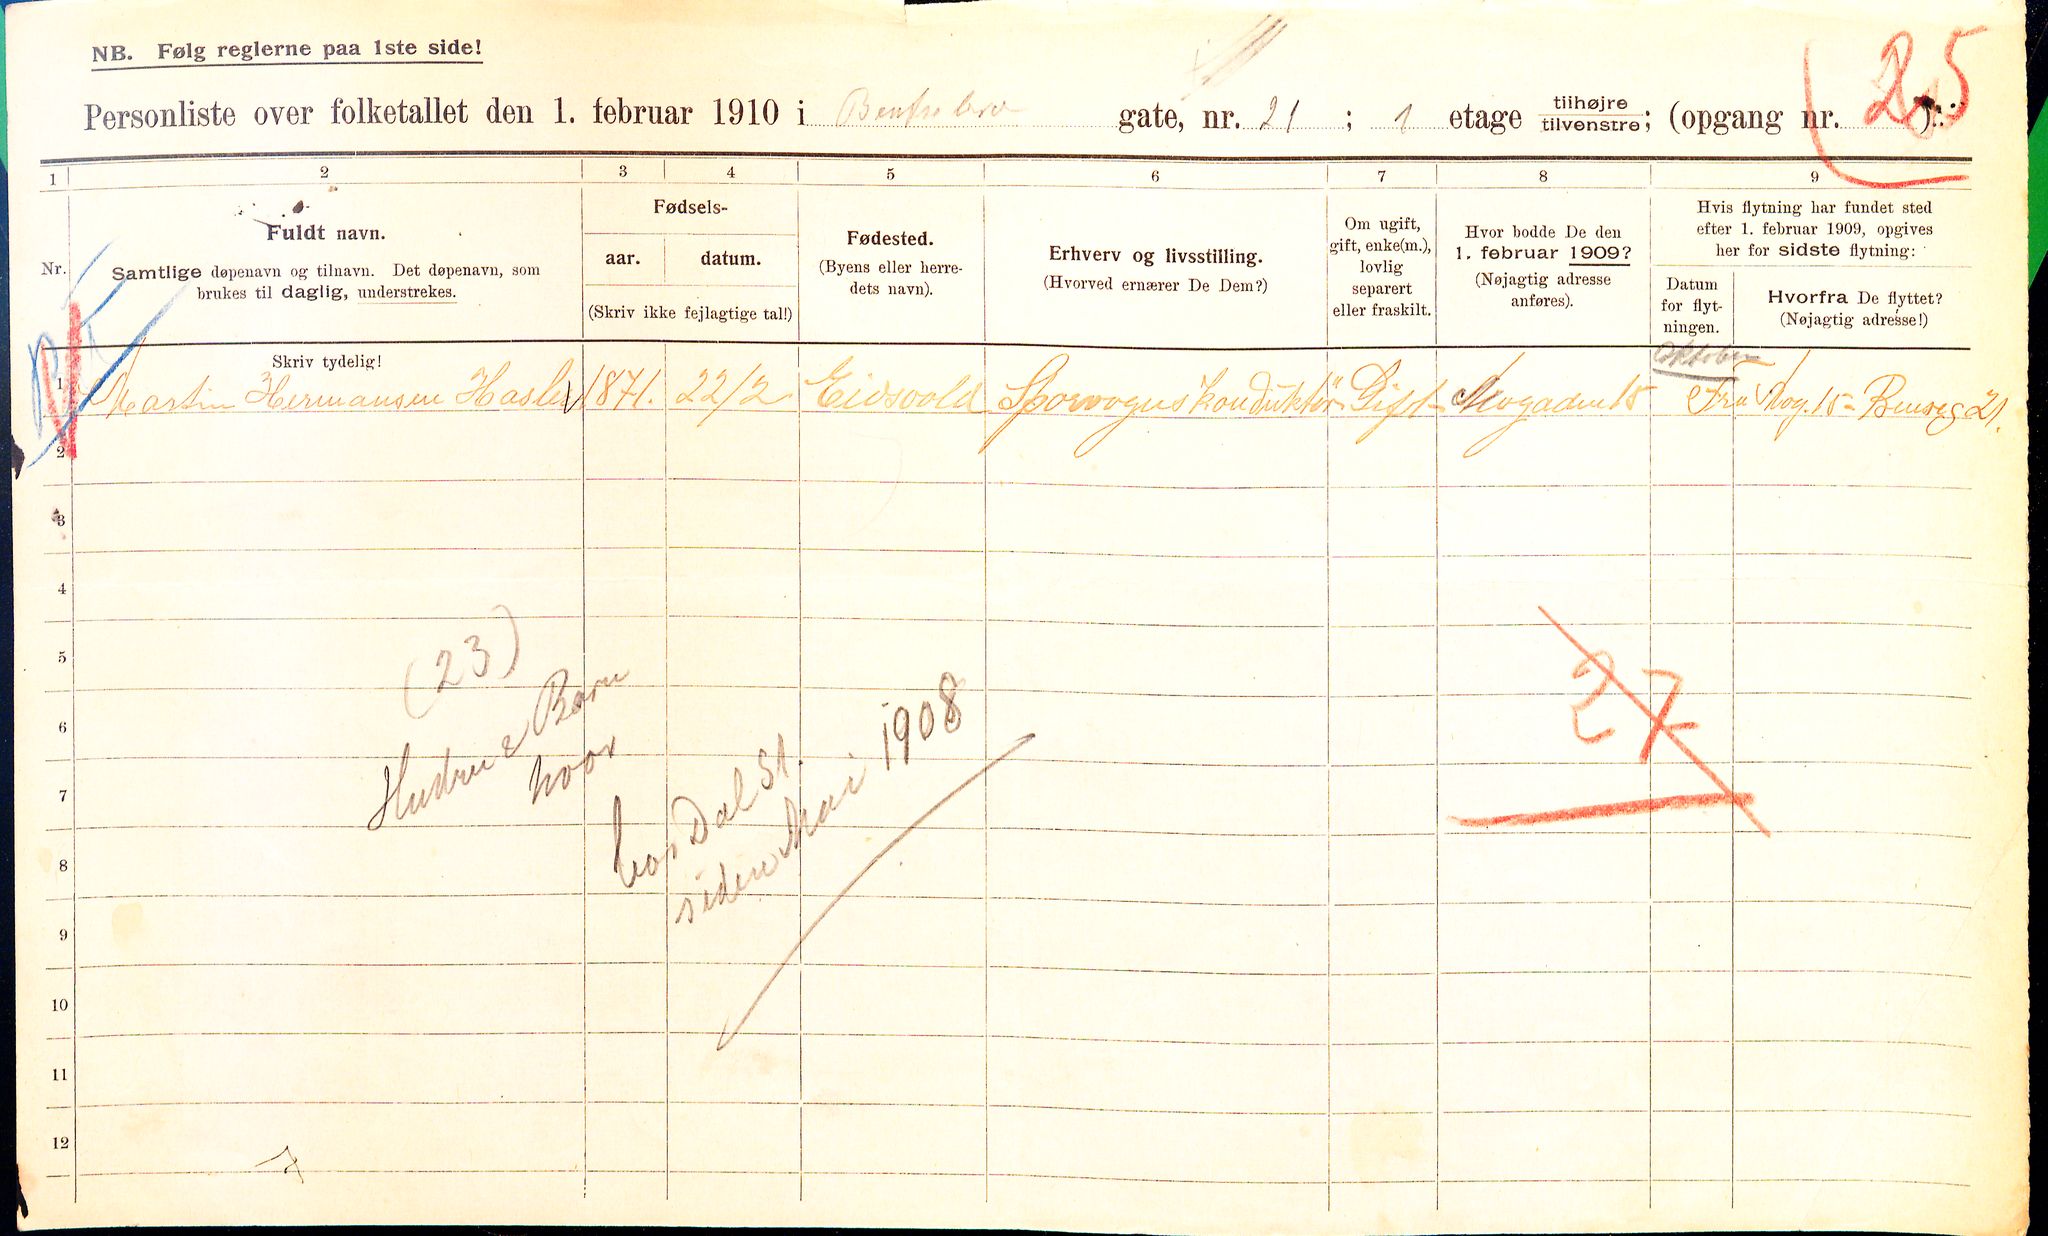 NB. Følg reglerne paa 1ste side!
25
Personliste over folketallet den 1. februar 1910 i Bentsebro gate, nr. 21 ; 1 etage tilhøjre tilvenstre; (opgang nr. ):
1 2 3 4 5 6 7 8 9
Nr.
Fuldt navn.
Samtlige døpenavn og tilnavn. Det døpenavn, som
brukes til daglig, understrekes.
Skriv tydelig!
Fødsels-
aar. datum.
(Skriv ikke fejlagtige tal!)
Fødested.
(Byens eller herre-
dets navn).
Erhverv og livsstilling.
(Hvorved ernærer De Dem?)
Om ugift,
gift, enke(m.),
lovlig
separert
eller fraskilt.
Hvor bodde De den
1. februar 1909?
(Nøjagtig adresse
anføres).
Hvis flytning har fundet sted
efter 1. februar 1909, opgives
her for sidste flytning:
Datum
for flyt-
ningen.
Hvorfra De flyttet?
(Nøjagtig adresse!)
Oktober
1 Martin Hermansen Hasle 1871. 22/2 Eidsvold Sporvogns Konduktør Gift Skogaden 15 Fra Skog. 15 - Benseg 21.
2
3
4
5
6
7
8
9
10
11
12
(23)
Hustru & Børn
hos Dal St.
siden Mai 1908
27